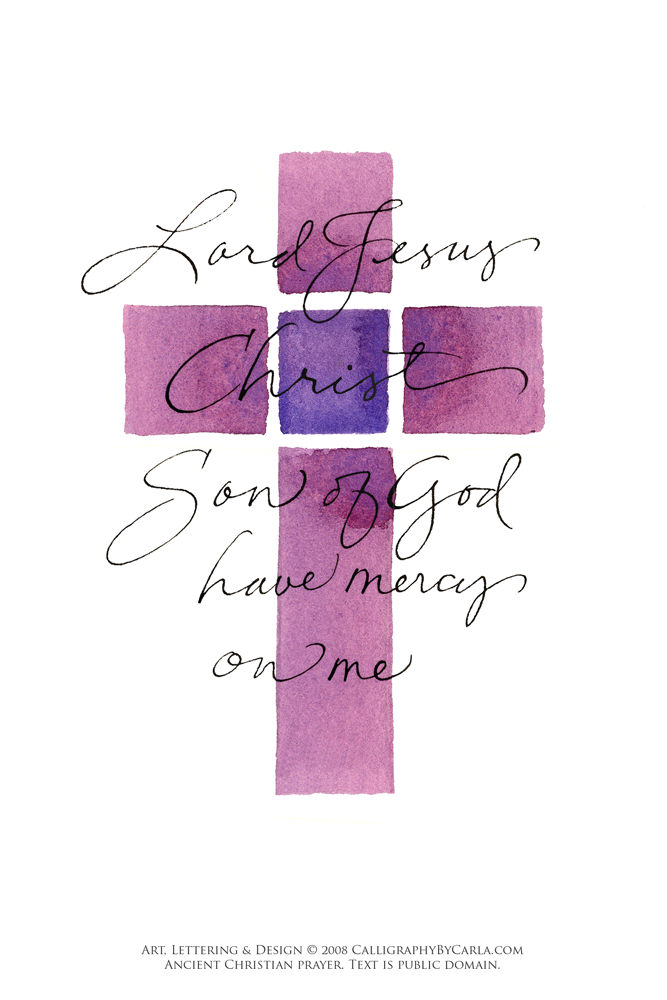 Lord Jesus
Christ
Son of God
have mercy
on me
Art, Lettering & Design © 2008 CalligraphyByCarla.com
Ancient Christian prayer. Text is public domain.